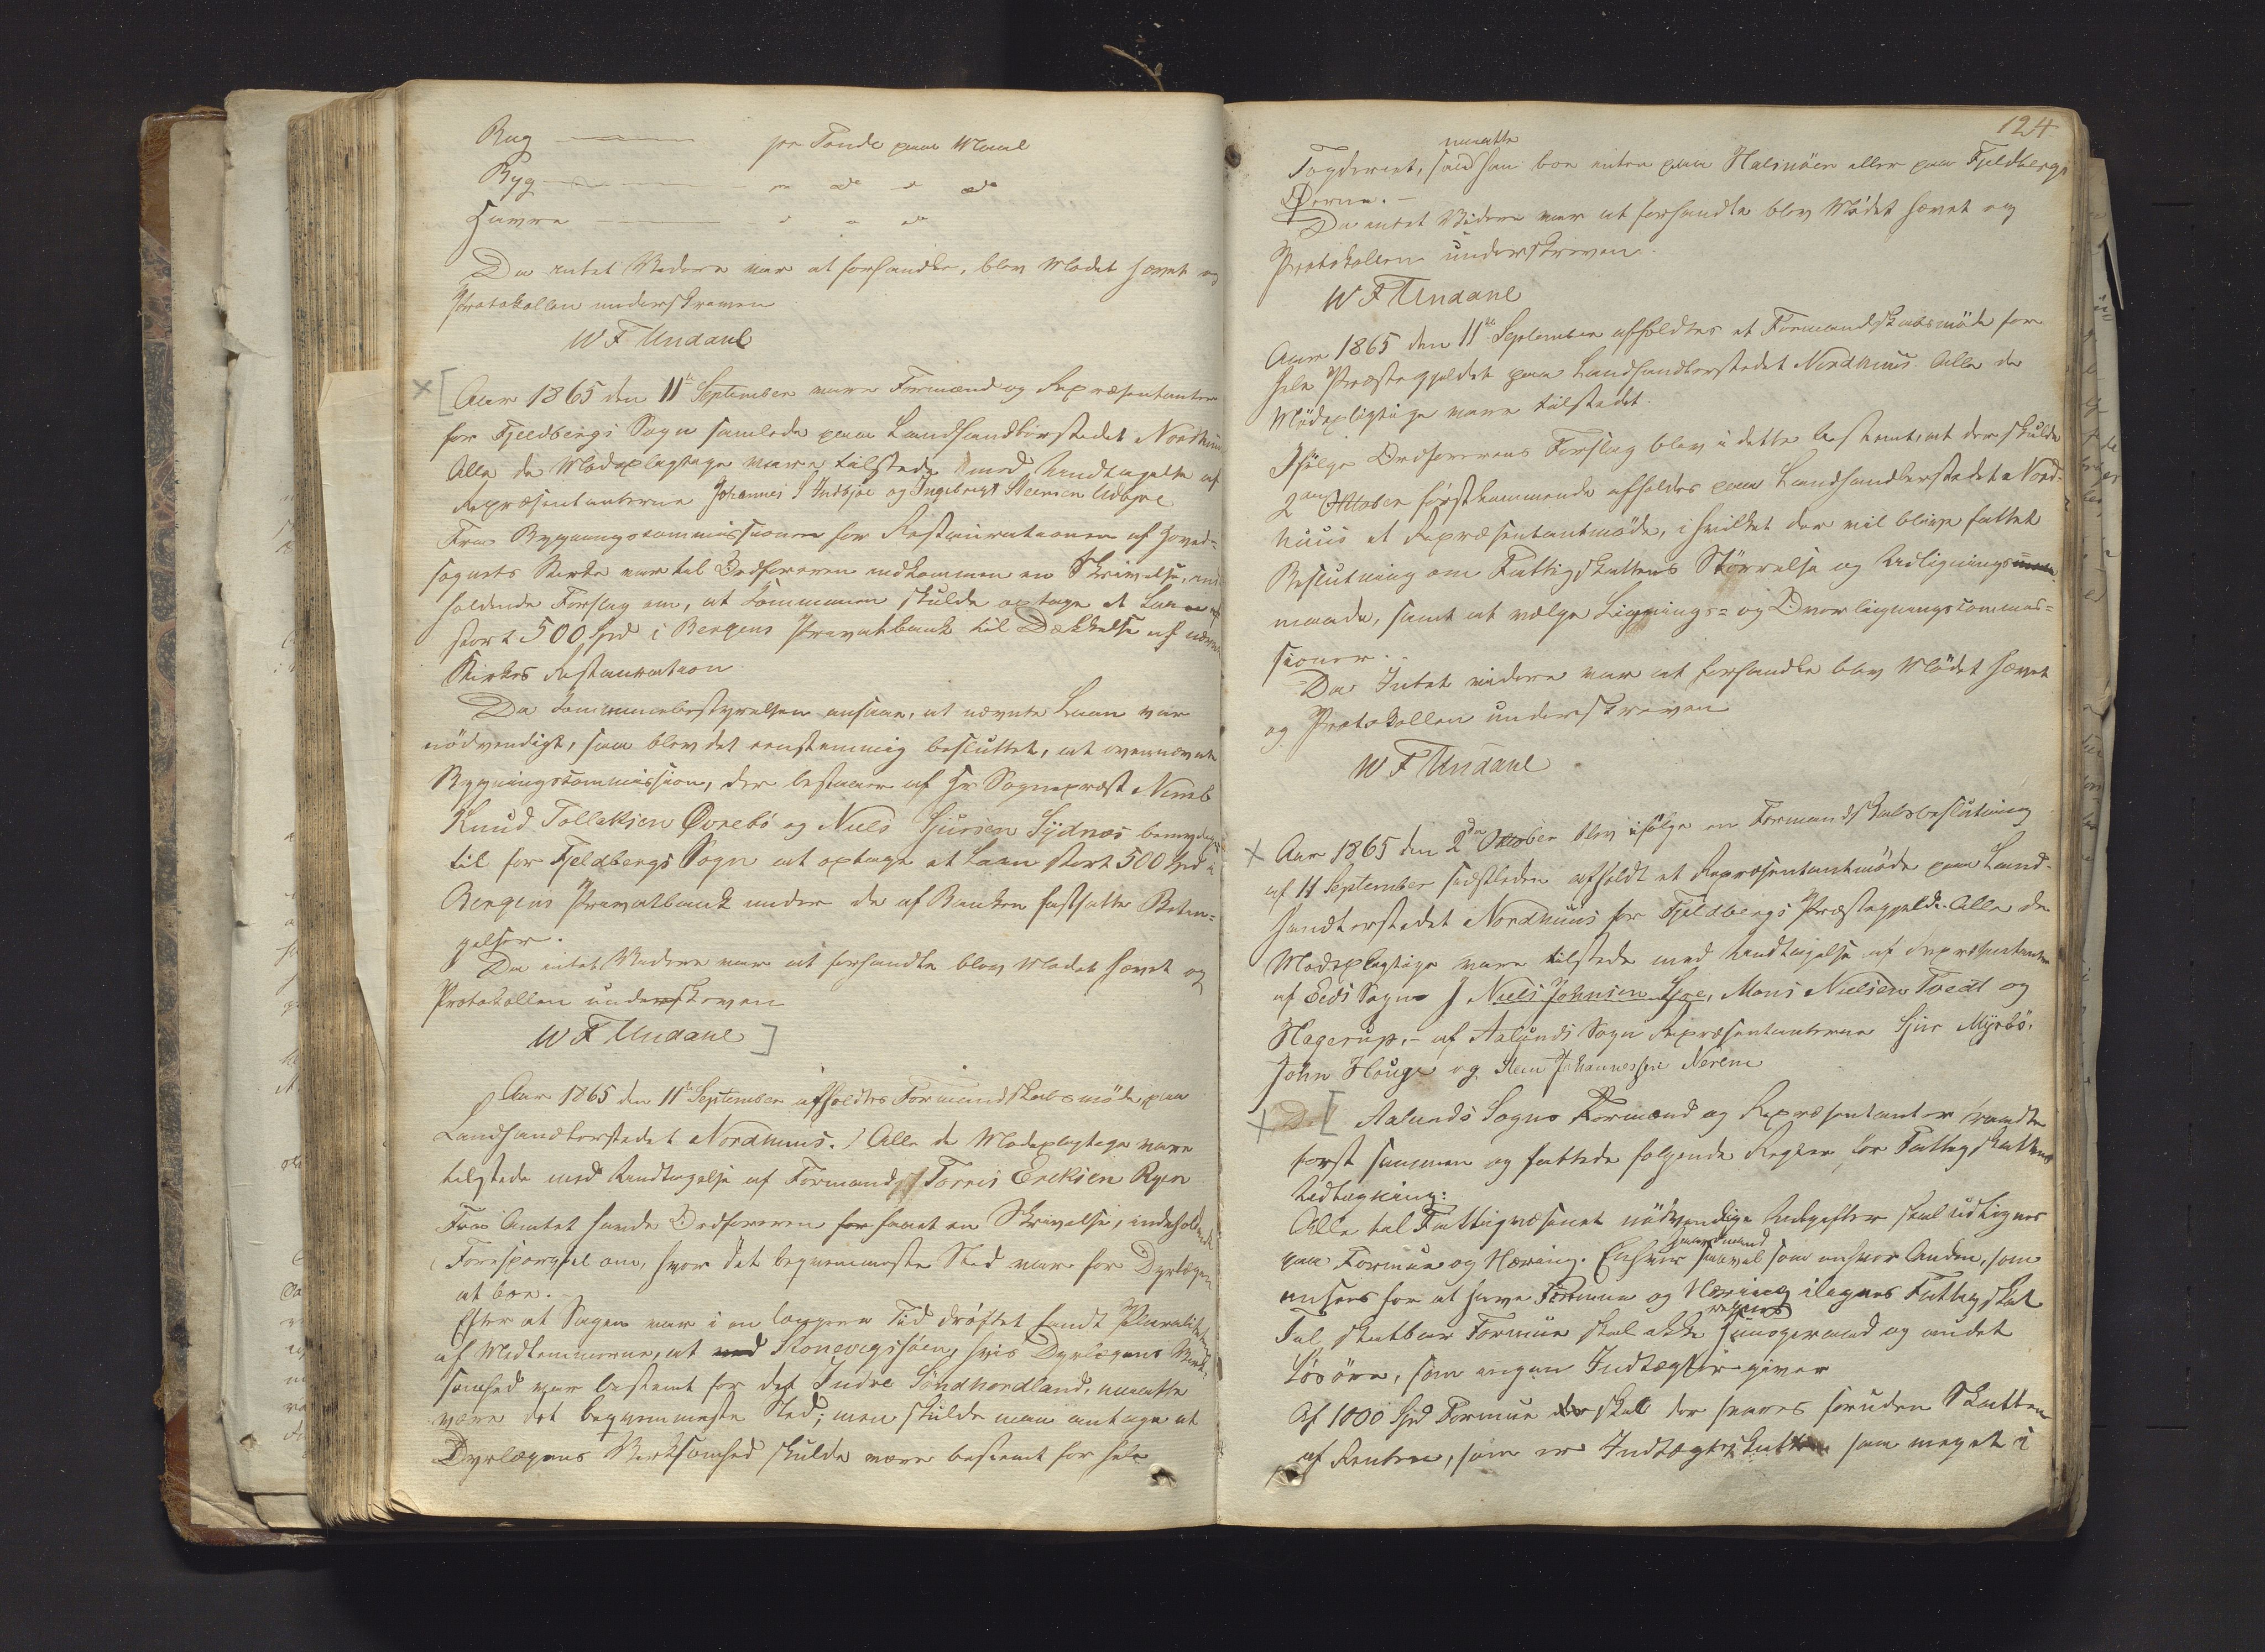 Rug ——— pr Tønde paa Maal
Byg ——— " do " do
Havre ——— " " do
Da intet Videre var at forhandle, blev Mødet hævet og
Protokollen underskreven
W F Undahl
Aar 1865 den 11te September vare Formænd og Repræsentanter
for Fjeldbergs Sogn samlede paa Landhandlerstedet Nordhuus
Alle de Mødepligtige vare tilstede med Undtagelse af
Repræsentanterne Johannes J Indbjoe og Ingebrigt Steensen Udbyre
Fra Bygningscommissionen for Restaurationen af Hoved-
sognets Kirke var til Ordføreren indkommen en Skrivelse, inde
holdende Forslag om, at Kommunen skulde optage et Laan
stort 500 Spd i Bergens Privatbank til Dækkelse af nævnte
Kirkes Restauration
Da Kommunebestyrelsen ansaae, at nævnte Laan var
nödvendigt, saa blev det eenstemmig besluttet, at ovennævnte
Bygningscommission, der bestaaer af Hr Sognepræst Numb
Knud Tollaksen Øvrebö og Niels Sjursen Sydnæs bemyndiges
til for Fjeldbergs Sogn at optage et Laan stort 500 Spd i
Bergens Privatbank under de af Banken fastsatte Betin-
gelser.
Da intet Videre var at forhandle blev Mødet hævet og
Protokollen underskreven
W F Undahl
Aar 1865 den 11te September afholdtes Formandskabsmöde paa
Landhandlerstedet Nordhuus. Alle de Mødepligtige vare
tilstede med Undtagelse af Formand Torris Ericksen Ryen
Fra Amtet havde Ordføreren faaet en Skrivelse, indeholdende
Forespørgsel om, hvor det beqvemmeste Sted var for Dyrlægen
at boe.
Efter at Sagen var i en længere Tid dröftet fandt Pluraliteten
af Medlemmerne, at Skonevigsjöen, hvis Dyrlægens Virk-
somhed var bestemt for det Indre Söndhordland, maatte
være det beqvemmeste Sted; men skulde man antage at
Dyrlægens Virksomhed skulde være bestemt for hele
124
Fogderiet, saa maatte han boe enten paa Halsnöen eller paa Fjeldbergs
Øerne.-
Da intet Videre var at forhandle blev Mödet hævet og
Protokollen underskreven.
W F Undahl
Aar 1865 den 11te September afholdtes et Formandskabsmöde for
hele Præstegjeldet paa Landhandlerstedet Nordhuus Alle de
Mödepligtige vare tilstedet.
Ifölge Ordførerens Forslag blev i dette bestemt, at der skulde
2den Oktober förstkommende afholdes paa Landhandlerstedet Nord-
huus et Repræsentantmöde, i hvilket der vil blive fattet
Beslutning om Fattigskattens Störrelse og Udlignings
maade, samt at vælge Lignings- og Overligningscommis-
sioner.
Da Intet videre var at forhandle blev Mödet hævet
og Protokollen underskreven
W F Undahl
Aar 1865 den 2den Oktober blev ifölge en Formandskabsbeslutning
af 11 September sidstleden afholdt et Repræsentantmöde paa Land-
handlerstedet Nordhuus for Fjeldbergs Præstegjeld. Alle de
Mødepligtige vare tilstede med Undtagelse af Repræsentanterne
af Eeds Sogn Niels Johnsen Sjoe, Mons Nielsen Tvedt og
Hagerup,- af Aalunds Sogn Repræsentanterne Sjur Myrbö,
John Houge og Steen Johannessen Nerem
Aalunds Sogns Formænd og Repræsentanter traadte
først sammen og fattede følgende Regler for Fattigskattens
Udligning:
Alle til Fattigvæsenet nödvendige Udgifter skal udlignes
paa Formue og Næring. Enhver Gaardmand saavel som enhver Anden, som
ansees for at have Formue og Næring ilignes Fattigskat
Til skatbar Formue skal ikke regnes Huusgeraad og andet
Lösöre, som ingen Indtægter giver
Af 1000 Spd Formue skal der svares foruden Skatten
af Renten, som er Indtægtsskatten saa meget i